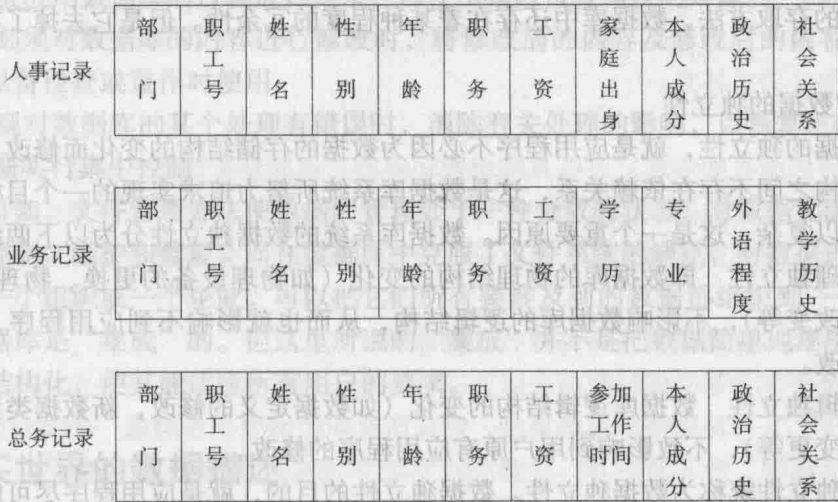 人事记录 部门 职工号 姓名 性别 年龄 职务 工资 家庭出身 本人成分 政治历史 社会关系
业务记录 部门 职工号 姓名 性别 年龄 职务 工资 学历 专业 外语程度 教学历史
总务记录 部门 职工号 姓名 性别 年龄 职务 工资 参加工作时间 本人成分 政治历史 社会关系